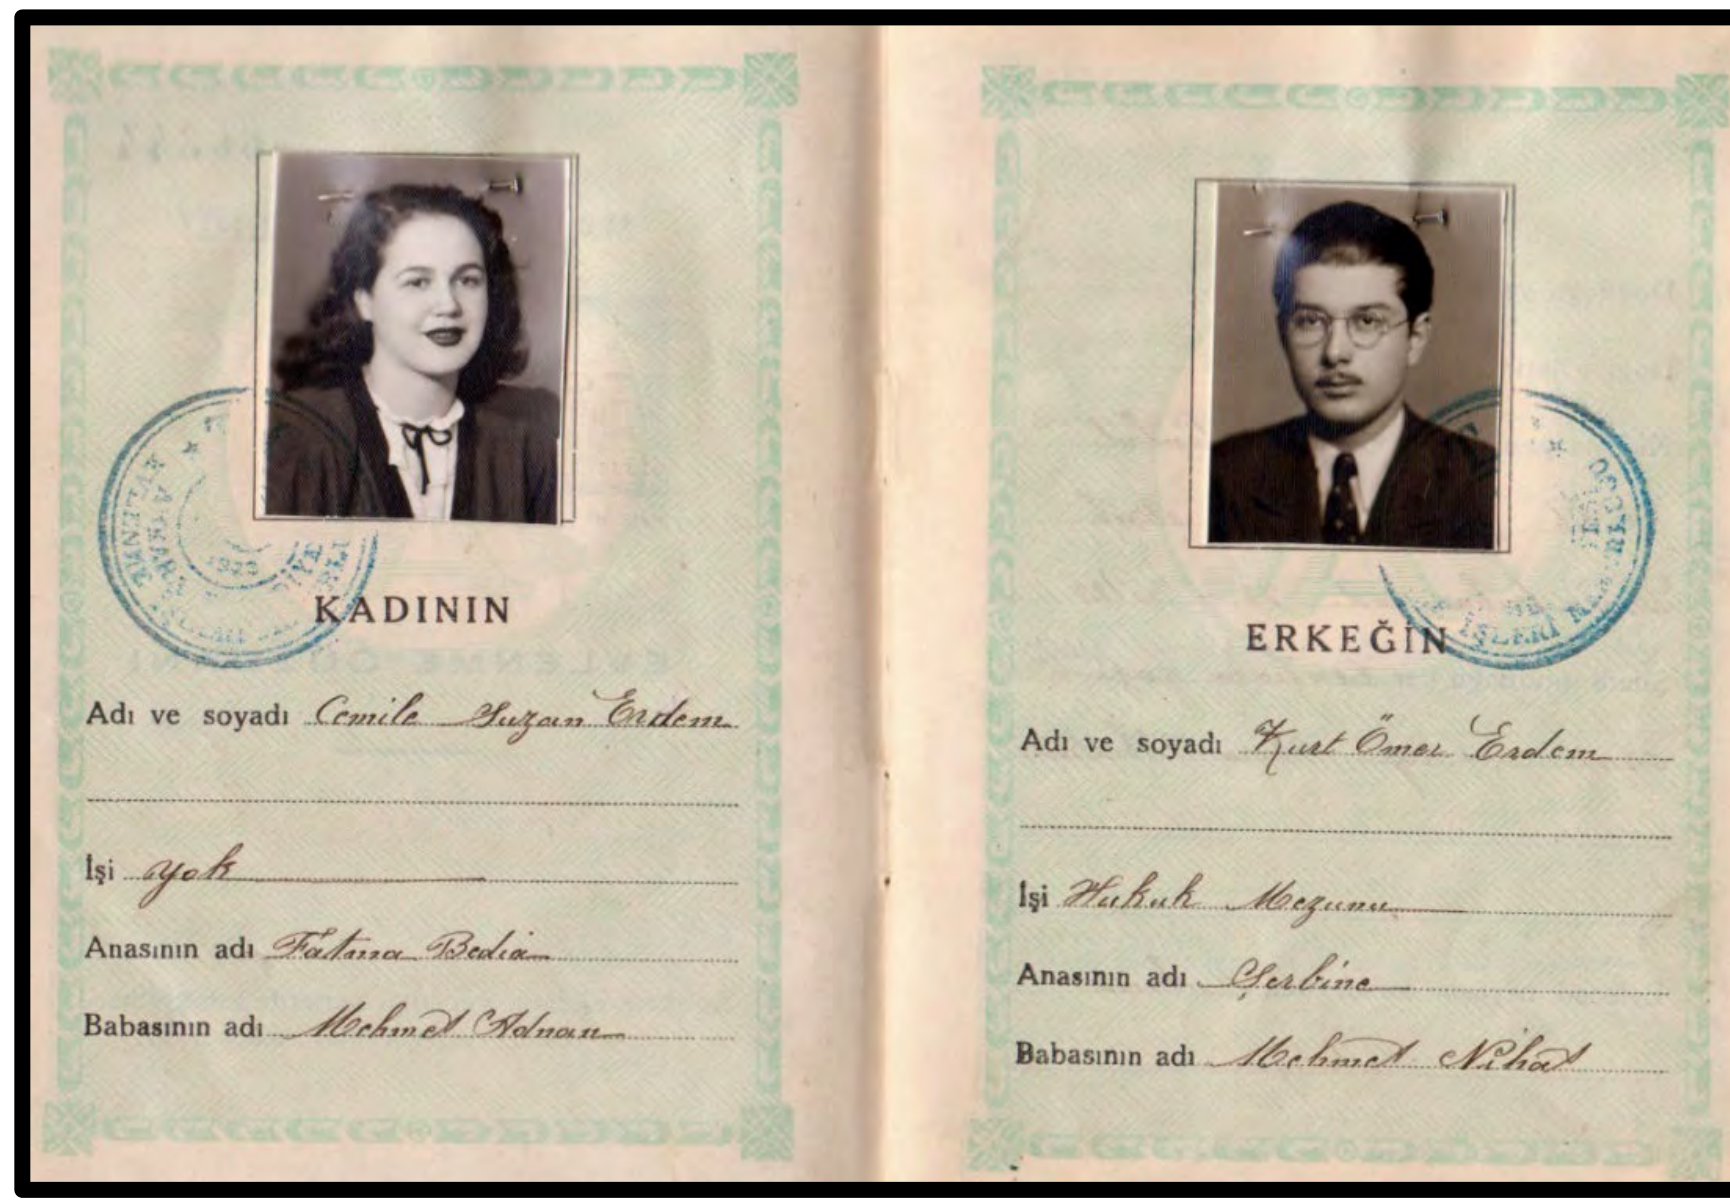 KADININ
Adı ve soyadı Cemile Suzan Erdem
İşi yok
Anasının adı Fatma Bedia
Babasının adı Mehmet Adnan
1923
ERKEĞİN
Adı ve soyadı Kurt Ömer Erdem
İşi Hukuk Mezunu
Anasının adı Şerbine
Babasının adı Mehmet Nihat
İŞLERİ